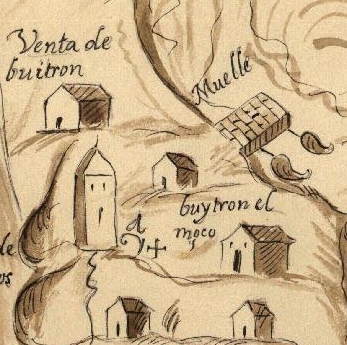 Venta de
buitron
Muelle
buytron el
moco
de
os